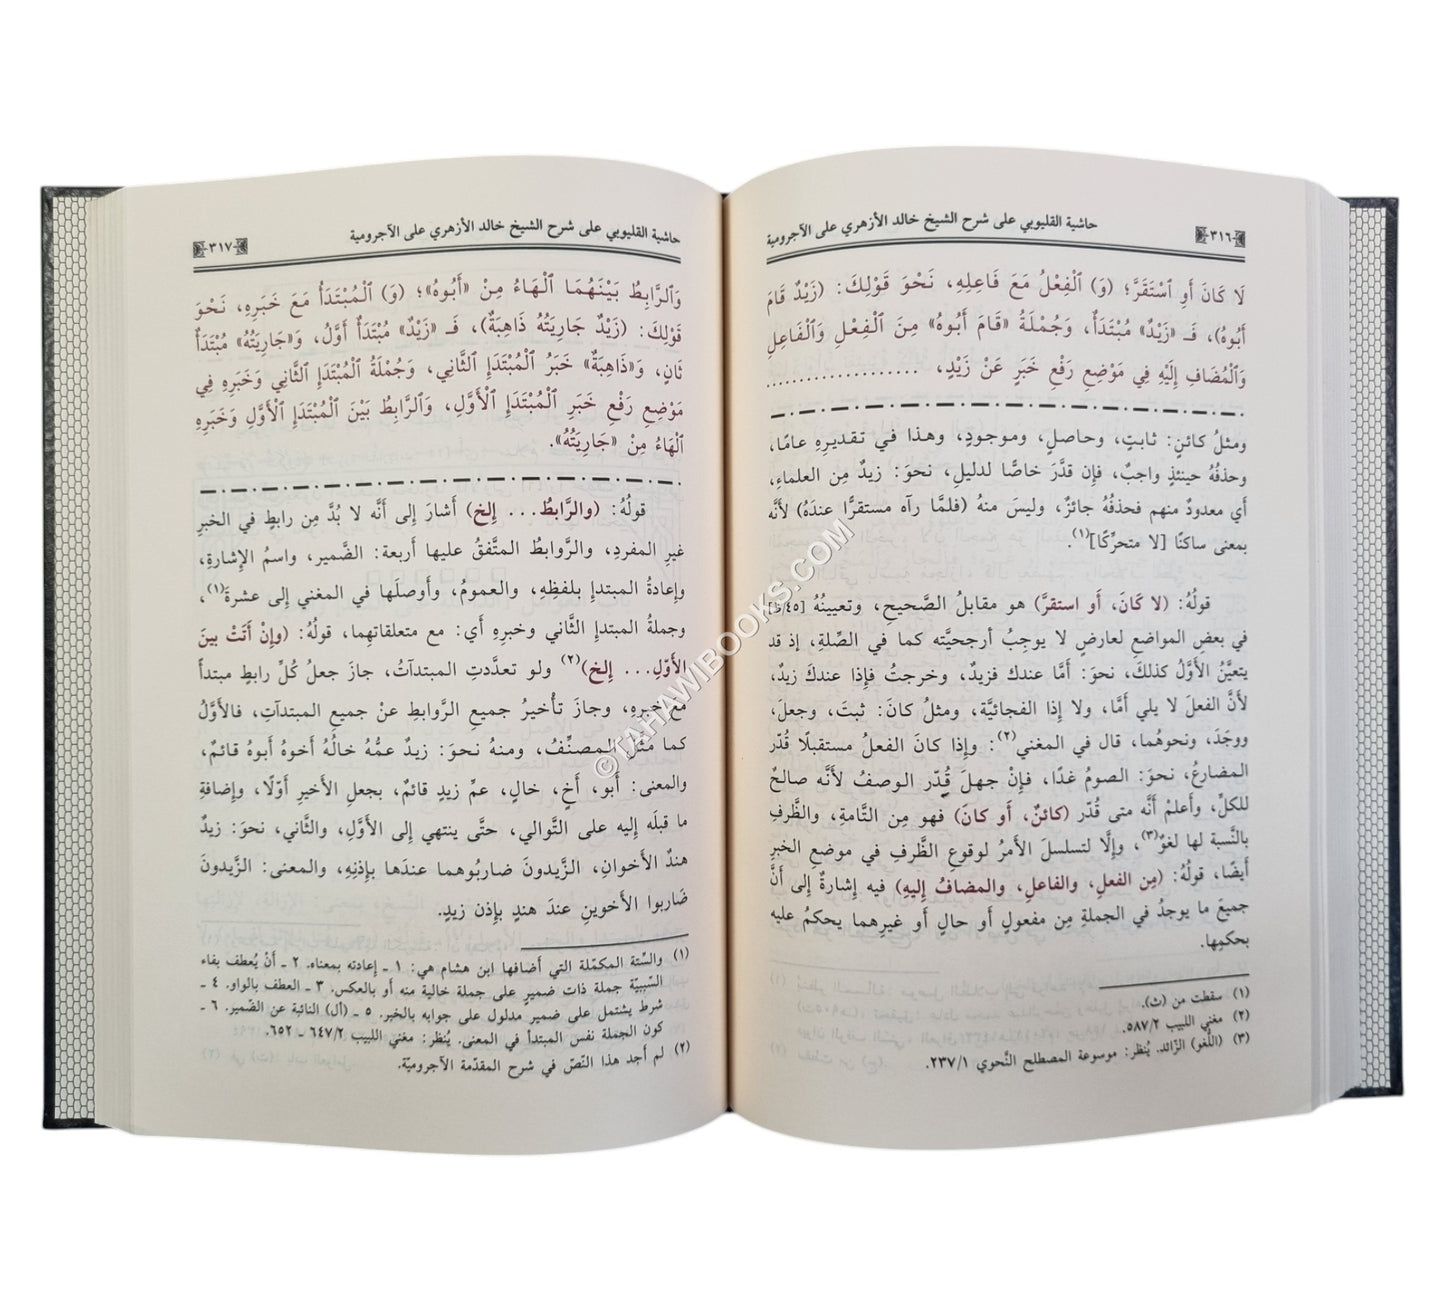 ٣١٦ حاشية القليوبي على شرح الشيخ خالد الأزهري على الآجرومية
لَا كَانَ أَوِ ٱسْتَقَرَّ؛ (وَ) ٱلْفِعْلُ مَعَ فَاعِلِهِ، نَحْوَ قَوْلِكَ: (زَيْدٌ قَامَ
أَبُوهُ)، فَـ «زَيْدٌ» مُبْتَدَأٌ، وَجُمْلَةُ «قَامَ أَبُوهُ» مِنَ ٱلْفِعْلِ وَٱلْفَاعِلِ
وَٱلْمُضَافِ إِلَيْهِ فِي مَوْضِعِ رَفْعِ خَبَرٍ عَنْ زَيْدٍ، ....................
ومثلُ كائنٍ: ثابتٍ، وحاصلٍ، وموجودٍ، وهذا في تقديرِهِ عامًا،
وحذفُهُ حينئذٍ واجبٌ، فإن قدَّرَ خاصًّا لدليلٍ، نحوَ: زيدٌ مِن العلماءِ،
أي معدودٌ منهم فحذفُهُ جائزٌ، وليسَ منهُ (فلمَّا رآه مستقرًّا عندَهُ) لأنَّه
بمعنى ساكنًا [لا متحرِّكًا](١).
قولُهُ: (لا كَانَ، أَو استقرَّ) هو مقابلُ الصَّحيحِ، وتعيينُهُ [٤٥/ب]
في بعضِ المواضعِ لعارضٍ لا يوجِبُ أرجحيَّته كما في الصِّلةِ، إذ قد
يتعيَّنُ الأَوَّلُ كذلكَ، نحوَ: أمَّا عندك فزيدٌ، وخرجتُ فإذا عندكَ زيدٌ،
لأنَّ الفعلَ لا يلي أمَّا، ولا إذا الفجائيَّة، ومثلُ كانَ: ثبتَ، وجعلَ،
ووجَدَ، ونحوُهما، قال في المغني(٢): وإذا كانَ الفعلُ مستقبلًا قُدّر
المضارعُ، نحوَ: الصومُ غدًا، فإنْ جهلَ قُدّر الوصفُ لأنَّه صالحٌ
للكلِّ، وأعلمْ أنَّه متى قُدّر (كائنٌ، أو كانَ) فهو مِن التَّامةِ، والظَّرفِ
بالنَّسبة لها لغوٌ(٣)، وإلَّا لتسلسلَ الأمرُ لوقوعِ الظَّرفِ في موضعِ الخبرِ
أيضًا، قولُهُ: (مِن الفعلِ، والفاعلِ، والمضافُ إليهِ) فيه إشارةٌ إلى أنَّ
جميعَ ما يوجدُ في الجملةِ مِن مفعولٍ أو حالٍ أو غيرِهما يحكمُ عليه
بحكمِها.
(١) سقطت من (ث).
(٢) مغني اللبيب ٥٨٧/٢.
(٣) (اللَّغو) الزّائد. يُنظر: موسوعة المصطلح النَّحوي ٢٣٧/١.
حاشية القليوبي على شرح الشيخ خالد الأزهري على الآجرومية ٣١٧
وَٱلرَّابِطُ بَيْنَهُمَا ٱلْهَاءُ مِنْ «أَبُوهُ»؛ (وَ) ٱلْمُبْتَدَأُ مَعَ خَبَرِهِ، نَحْوَ
قَوْلِكَ: (زَيْدٌ جَارِيَتُهُ ذَاهِبَةٌ)، فَـ «زَيْدٌ» مُبْتَدَأٌ أَوَّلُ، وَ«جَارِيَتُهُ» مُبْتَدَأٌ
ثَانٍ، وَ«ذَاهِبَةٌ» خَبَرُ ٱلْمُبْتَدَإِ ٱلثَّانِي، وَجُمْلَةُ ٱلْمُبْتَدَإِ ٱلثَّانِي وَخَبَرِهِ فِي
مَوْضِعِ رَفْعِ خَبَرِ ٱلْمُبْتَدَإِ ٱلْأَوَّلِ، وَٱلرَّابِطُ بَيْنَ ٱلْمُبْتَدَإِ ٱلْأَوَّلِ وَخَبَرِهِ
ٱلْهَاءُ مِنْ «جَارِيَتُهُ».
قولُهُ: (والرَّابطُ... إلخ) أشارَ إلى أنَّه لا بُدَّ مِن رابطٍ في الخبرِ
غيرِ المفردِ، والرَّوابطُ المتَّفقُ عليها أربعة: الضَّمير، واسمُ الإشارةِ،
وإعادةُ المبتدإِ بلفظِهِ، والعمومُ، وأوصلَها في المغني إلى عشرةَ(١)،
وجملةُ المبتدإِ الثَّاني وخبرِهِ أي: مع متعلقاتِهِما، قولُهُ: (وإنْ أتتْ بينَ
الأوّلِ... إلخ)(٢) ولو تعدَّدتِ المبتدآتُ، جازَ جعلُ كُلِّ رابطٍ مبتدأً
مع خبرِهِ، وجازَ تأْخيرُ جميعِ الرَّوابطِ عنْ جميعِ المبتدآتِ، فالأَوَّلُ
كما مثَّلَ المصنِّفُ، ومنهُ نحوَ: زيدٌ عمُّهُ خالُهُ أخوهُ أبوهُ قائمٌ،
والمعنى: أَبو، أخِ، خالٍ، عمِّ زيدٍ قائمٌ، بجعلِ الأخيرِ أوّلًا، وإضافةِ
ما قبلَه إليه على التَّوالي، حتَّى ينتهي إلى الأوَّلِ، والثَّاني، نحوَ: زيدٌ
هندٌ الأخوانِ، الزَّيدونَ ضاربُوهما عندَها بإذنِهِ، والمعنى: الزَّيدونَ
ضَاربوا الأخوينِ عندَ هندٍ بإذن زيدٍ.
(١) والسِّتة المكمّلة التي أضافها ابن هشام هي: ١ ـ إعادته بمعناه. ٢ ـ أنْ يُعطف بفاء
السّببيّة جملة ذات ضميرٍ على جملة خالية منه أو بالعكس. ٣ ـ العطف بالواو. ٤ ـ
شرط يشتمل على ضميرٍ مدلول على جوابه بالخبر. ٥ ـ (أل) النائبة عن الضّمير. ٦ ـ
كون الجملة نفس المبتدأ في المعنى. يُنظر: مغني اللبيب ٦٤٧/٢ ـ ٦٥٢.
(٢) لم أجد هذا النّصّ في شرح المقدّمة الآجروميّة.
© TAHAWIBOOKS.COM